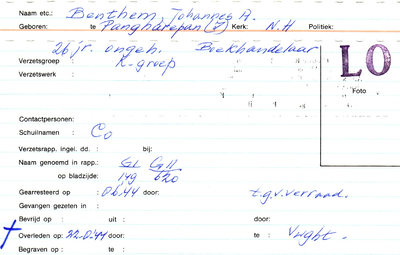 Naam etc.: Benthem, Johannes A.
Geboren: te Pangharepan (?) Kerk: N.H Politiek:
26 jr. ongeh. Boekhandelaar
Verzetsgroep K-groep
Verzetswerk :
LO
Foto
Contactpersonen:
Schuilnamen : Co
Verzetsrapp. ingel. dd. : bij:
Naam genoemd in rapp.: GL GII
op bladzijde: 149 620
Gearresteerd op : 06.44 door: t.g.v. verraad.
Gevangen gezeten in :
Bevrijd op : uit : door:
Overleden op: door: te : Vught.
Begraven op : te :